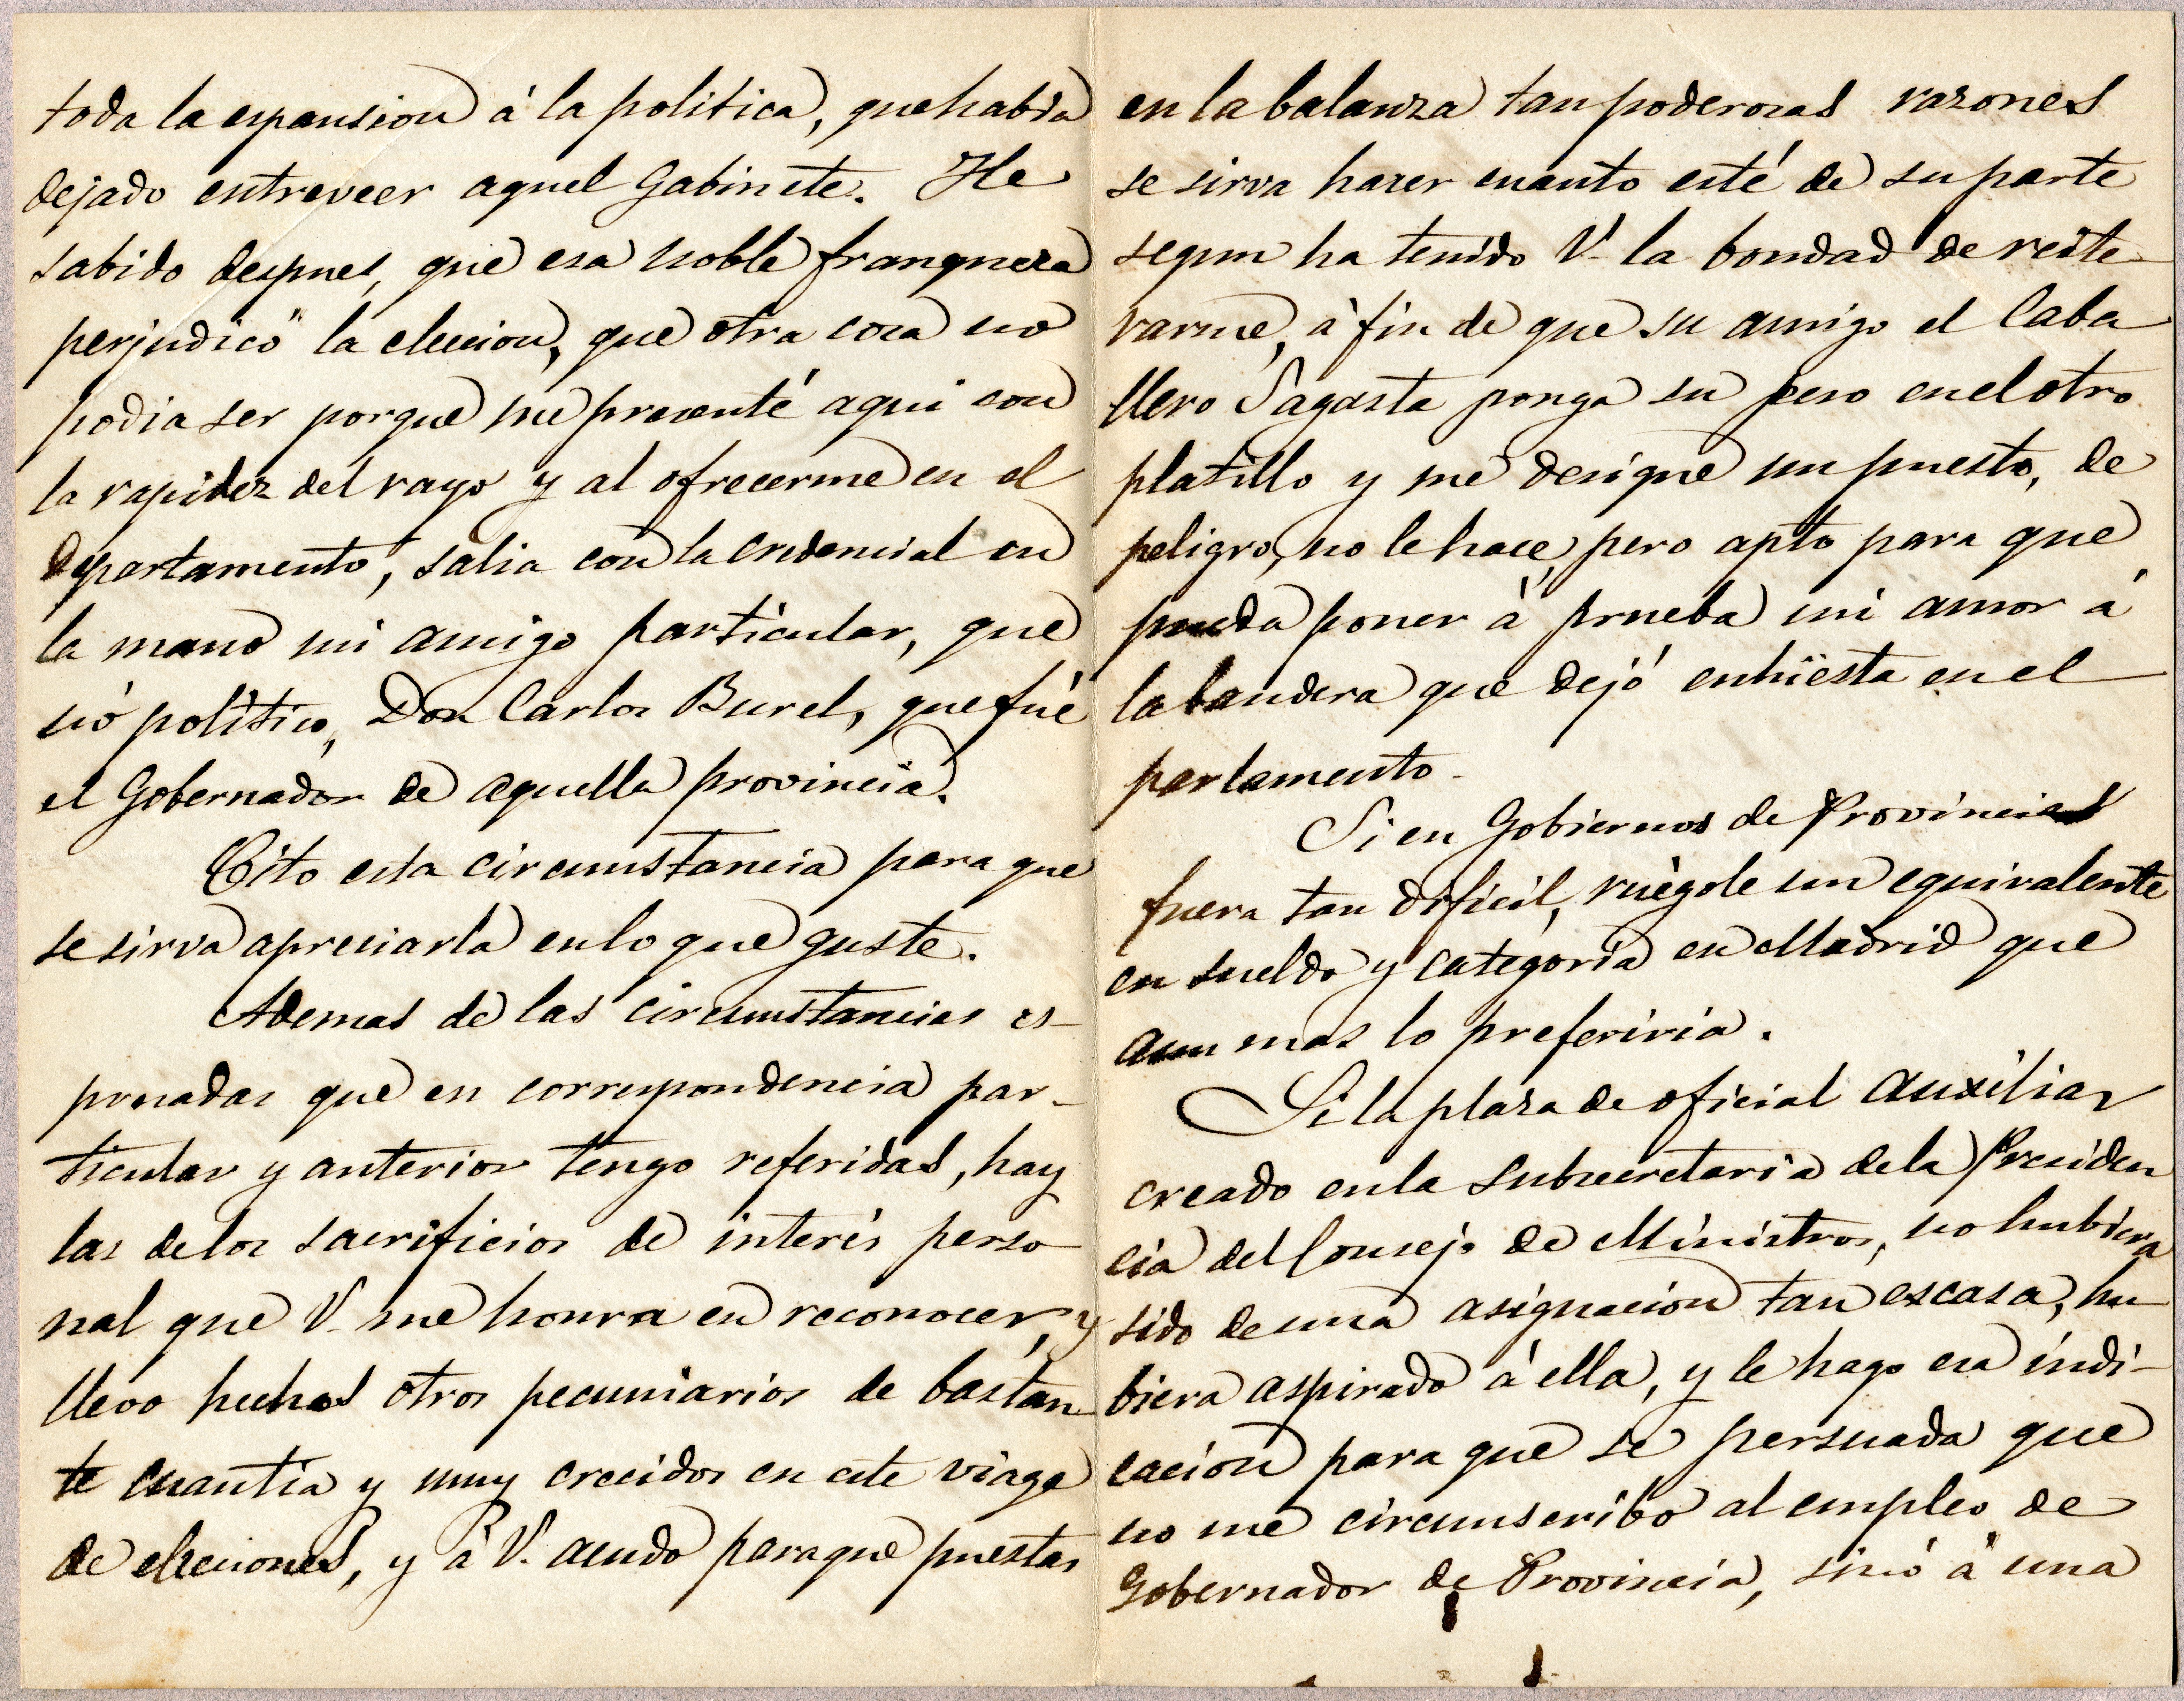 toda la espansion á la politica, que habia
dejado entreveer aquel Gabinete. He
sabido despues, que esa noble franqueza
perjudicó la eleccion, que otra cosa no
podia ser porque me presenté aqui con
la rapidez del rayo y al ofrecerme en el
departamento, salia con la credencial en
la mano mi amigo particular, que
nó politico, Don Carlos Burel, que fué
el Gobernador de aquella provincia.
Cito esta circunstancia para que
se sirva apreciarla en lo que guste.
Ademas de las circunstancias es-
presadas que en correspondencia par-
ticular y anterior tengo referidas, hay
las de los sacrificios de interés perso
nal que V. me honra en reconocer, y
llevo hechos otros pecuniarios de bastan
te cuantia y muy crecidos en este viage
de elecciones, y á V. acudo para que puestas
en la balanza tan poderosas razones
se sirva hacer cuanto esté de su parte
segun ha tenido V. la bondad de reite-
rarme, á fin de que su amigo el Caba
llero Sagasta ponga su peso en el otro
platillo y me designe un puesto, de
peligro, no le hace, pero apto para que
pueda poner á prueba mi amor á
la bandera que dejó enhiesta en el
parlamento.
Si en Gobiernos de Provincias
fuera tan dificil, ruégole un equivalente
en sueldo y categoria en Madrid que
aun mas lo preferiria.
Si la plaza de oficial auxiliar
creado en la subsecretaria de la Presiden
cia del Consejo de Ministros, no hubiera
sido de una asignacion tan escasa, hu
biera aspirado á ella, y le hago esa indi-
cacion para que se persuada que
no me circunscribo al empleo de
Gobernador de Provincia, sinó á una